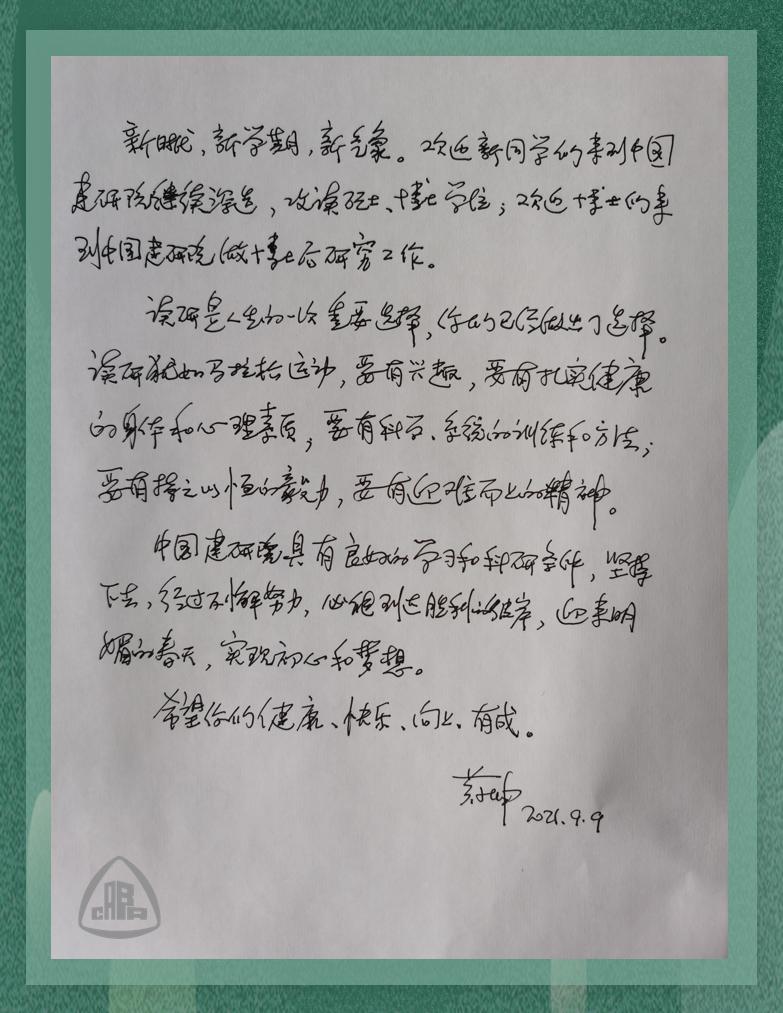 新时代，新学期，新气象。欢迎新同学们来到中国
建研院继续深造，攻读硕士、博士学位；欢迎博士们来
到中国建研院做博士后研究工作。
读研是人生的一次重要选择，你们已经做出了选择。
读研犹如马拉松运动，要有兴趣，要有扎实健康
的身体和心理素质，要有科学、系统的训练和方法；
要有持之以恒的毅力，要有迎难而上的精神。
中国建研院具有良好的学习和科研条件，坚持
下去，经过不懈努力，必能到达胜利的彼岸，迎来明
媚的春天，实现初心和梦想。
希望你们健康、快乐、向上、有成。
2021.9.9
CABR